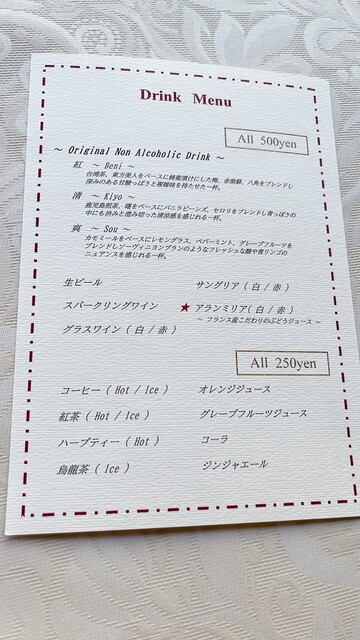 Drink Menu
All 500yen
～ Original Non Alcoholic Drink ～
紅 ～ Beni ～
台湾茶、東方美人をベースに蜂蜜漬けにした梅、赤紫蘇、八角をブレンドし
深みのある甘酸っぱさと複雑味を持たせた一杯。
清 ～ Kiyo ～
鹿児島煎茶、曙をベースにバニラビーンズ、セロリをブレンドし青っぽさの
中にも渋みと澄み切った清涼感を感じれる一杯。
爽 ～ Sou ～
カモミールをベースにレモングラス、ペパーミント、グレープフルーツを
ブレンドしソーヴィニヨンブランのようなフレッシュな酸や青リンゴの
ニュアンスを感じれる一杯。
生ビール
サングリア ( 白 / 赤 )
スパークリングワイン
★ アランミリア( 白 / 赤 )
～ フランス産こだわりのぶどうジュース ～
グラスワイン ( 白 / 赤 )
All 250yen
コーヒー ( Hot / Ice )
オレンジジュース
紅茶 ( Hot / Ice )
グレープフルーツジュース
ハーブティー ( Hot )
コーラ
烏龍茶 ( Ice )
ジンジャエール